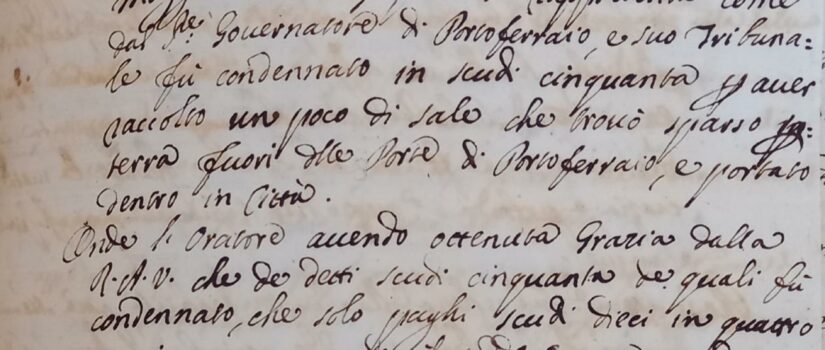 come
dal Sig.re Governatore di Portoferraio, e suo Tribuna=
le fù condennato in scudi cinquanta p aver
raccolto un poco di sale che trovò sparso p
terra fuori dlle Porte di Portoferraio, e portato
dentro in Città.
Onde l'Oratore avendo ottenuta Grazia dalla
R.A.V. che de detti scudi cinquanta de quali fù
condennato, che solo paghi scudi dieci in quattro